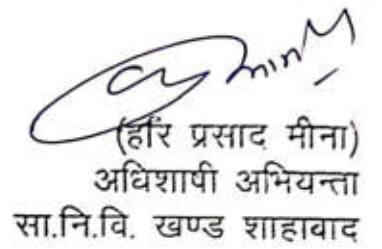 (हरि प्रसाद मीना)
अधिशाषी अभियन्ता
सा.नि.वि. खण्ड शाहाबाद